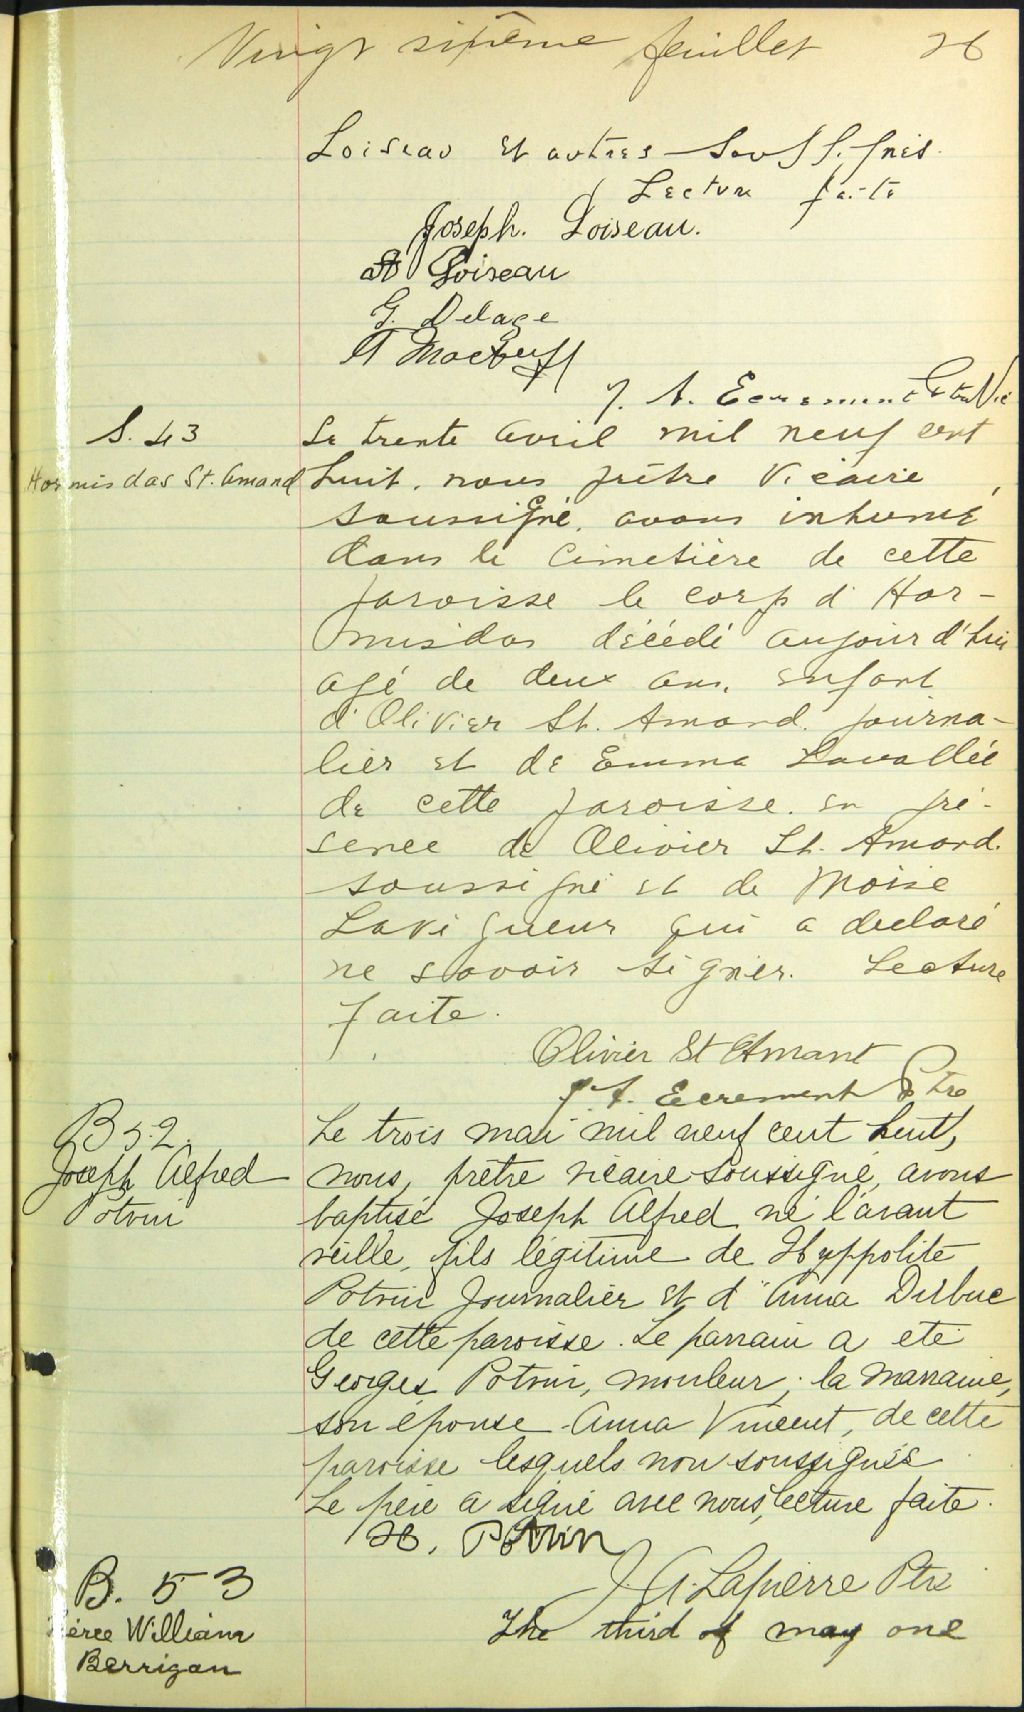 Vingt sixième feuillet 26
Loiseau et autres Soussignés.
Lecture faite
Joseph. Loiseau.
Loiseau
G. Delage
J. A. Ecrement
S. 43
Hormisdas St. Amand
Le trente avril mil neuf cent
huit, nous prêtre Vicaire,
soussigné, avons inhumé
dans le Cimetière de cette
paroisse le corp d'Hor-
misdas décédé aujourd'hui
agé de deux ans, enfant
d'Olivier St. Amand. journa-
lier et de Emma Lavallée
de cette paroisse. en pré-
sence de Olivier St. Amand.
soussigné et de Moise
Lavigueur qui a declaré
ne savoir signer. Lecture
faite.
Olivier St Amant
J. A. Ecrement Ptre
B 52.
Joseph Alfred
Potvin
Le trois mai mil neuf cent huit,
nous, prêtre vicaire soussigné, avons
baptisé Joseph Alfred né l'avant
veille, fils légitime de Hyppolite
Potvin Journalier et d'Anna Dulbuc
de cette paroisse. Le parrain a eté
Georges Potvin, mouleur; la marraine,
son épouse Anna Vincent, de cette
paroisse lesquels non soussignés
Le père a signé avec nous, lecture faite.
H. Potvin
J. A. Lapierre Ptre
B. 53
William
Berrigan
The third of may one